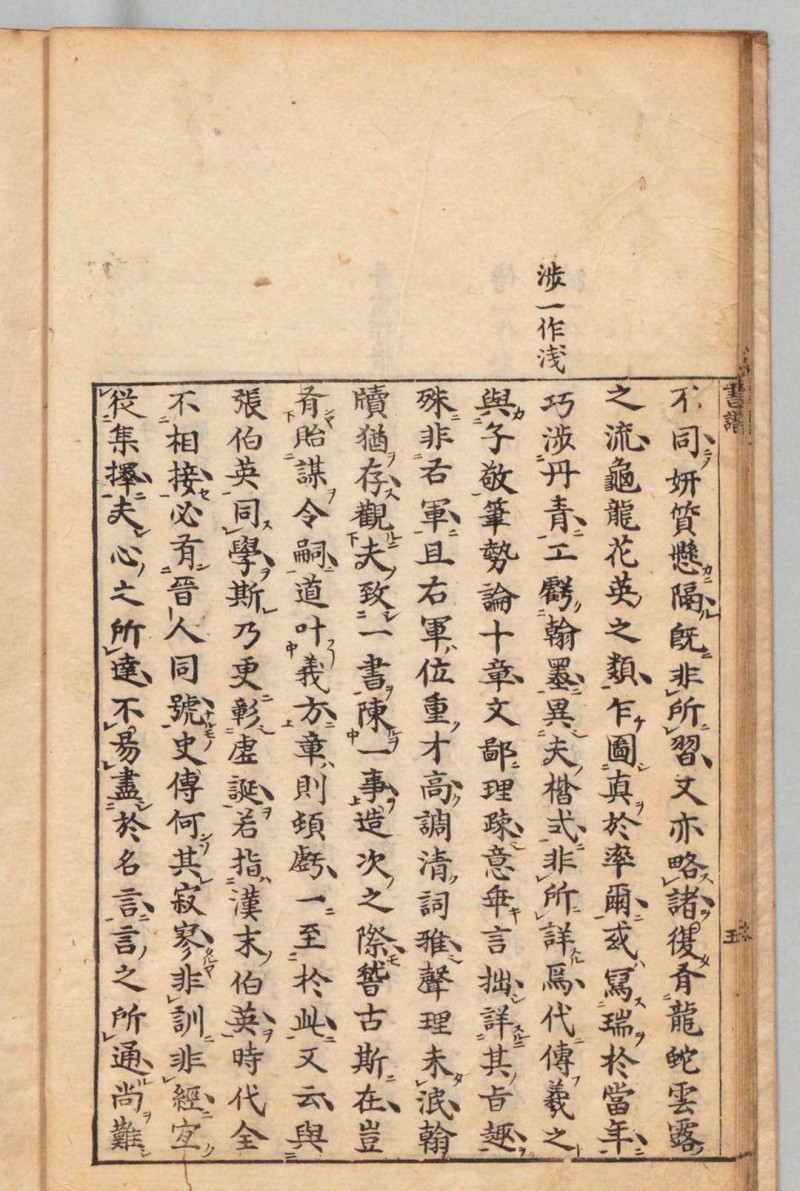 涉一作淺
不同妍質懸隔既非所習又亦略諸復有龍蛇雲露
之流龜龍花英之類乍圖真於率爾或寫瑞於當年
巧涉丹青工虧翰墨異夫楷式非所詳焉代傳羲之
與子敬筆勢論十章文鄙理疎意乖言拙詳其旨趣
殊非右軍且右軍位重才高調清詞雅聲理未泯翰
牘猶存觀夫致一書陳一事造次之際嵆古斯在豈
有貽謀令嗣道叶義方章則頓虧一至於此又云與
張伯英同學斯乃更彰虛誕若指漢末伯英時代全
不相接必有晉人同號史傳何其寂寥非訓非經宜
從集擇夫心之所達不昜盡於名言言之所通尚難
書譜